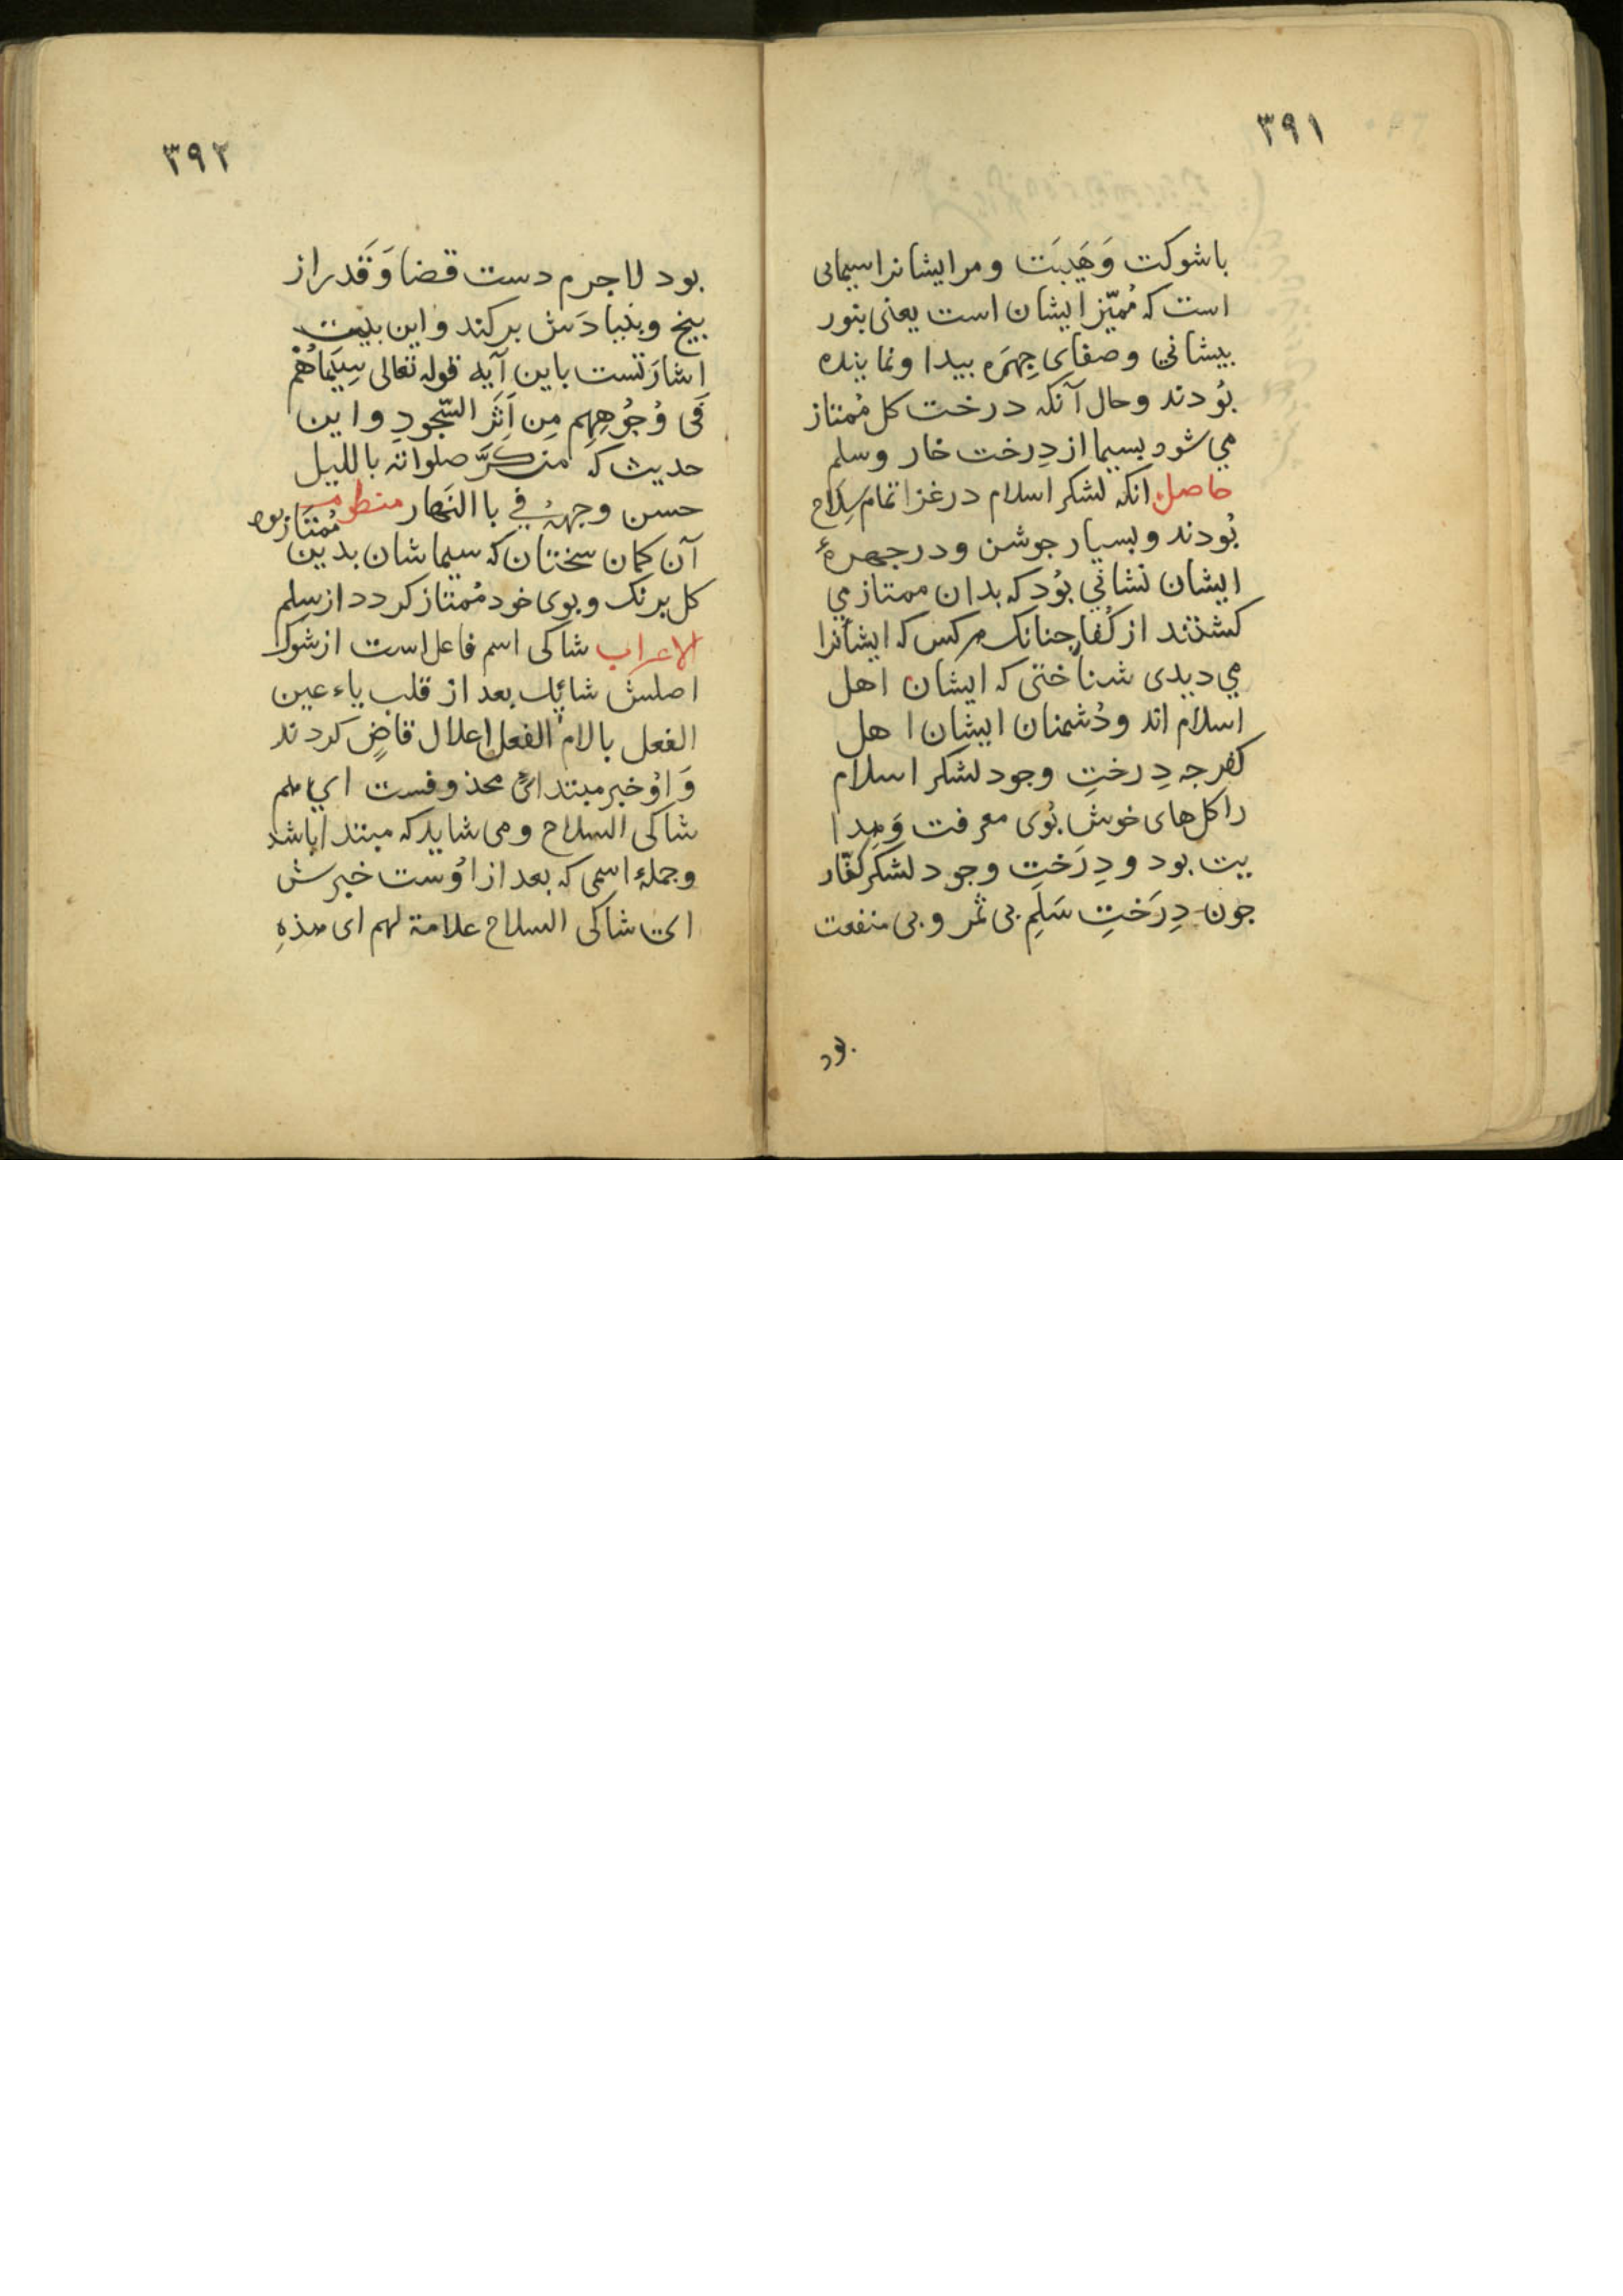 ٣٩١
باشوکت وَهَیبَت ومرایشانراسیمائی
است که مُمیّز ایشان است یعنی بنور
بیشانی وصفای جِهَره بیدا ونماینده
بُودند وحال آنکه درخت کل مُمتاز
می شود بسیما از دِرخت خار وسلم
حاصل آنکه لشکر اسلام درغزا تمام سِلاح
بُودند وبسیار جوشن ودرجهرهٔ
ایشان نشانی بوُد که بدان ممتاز می
کشتند از کُفار جنانک هرکس که ایشانرا
می دیدی شناختی که ایشان اهل
اسلام اند ودُشمنان ایشان اهل
کفر جه دِرختِ وجود لشکر اسلام
راکل های خوش بُوی معرفت وَهِدا
یت بود ودِرَختِ وجود لشکر کفّار
جون دِرَختِ سَلِم بی ثمر وبی منفعت
بود
٣٩٢
بود لاجرم دست قضا وَقَدر از
بیخ وبنیادَش برکند واین بیت
اشارَتست باین آیه قوله تعالی سِیَماهُمْ
فی وُجُوهِهِم مِن اَثَر السّجودِ واین
حدیث که من کَرَّ صلواته باللیل
حسن وجهه فی باالنَهار منظومه
مُمتَاز بود
آن کمان سختان که سیماشان بدین
کل برنک وبوی خود مُمتاز کردد از سلم
الاعراب شاکی اسم فاعل است از شوک
اصلش شائِك بعد از قلب یاء عین
الفعل بالام الفعل اعلال قاضٍ کردند
وَاوُخبر مبتداىٔ محذوفست ای هم
شاکی السلاح ومی شاید که مبتدا باشد
وجملهٔ اسمی که بعد از اوُست خبرش
ای شاکی السلاح علامة لهم ای هذهِ